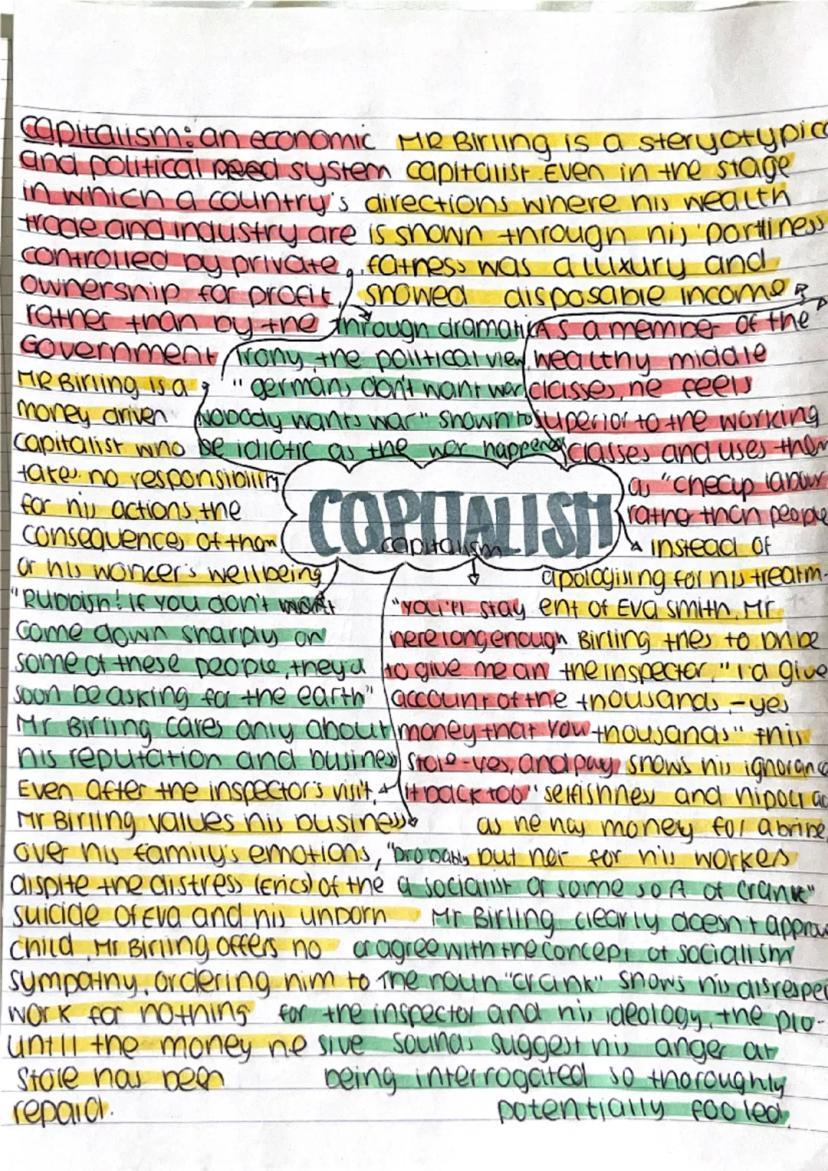 capitalism: an economic
and political peed system
in which a country's
trade and industry are
controlled by private
ownership for profit,
rather than by the
Government
MR Birling is a steryotypica
capitalist. Even in the stage
directions where his wealth
is shown through his 'portliness'
, fatness was a luxury and
showed disposable income
Through dramatic
irony, the political view
"germans don't want war
Nobody wants war" shown to
be idiotic as the war happened
As a member of the
wealthy middle
classes, he feels
superior to the working
classes and uses them
as "cheap labour
rather than people
MR Birling is a
money driven
capitalist who
takes no responsibility
for his actions, the
consequences of them
or his worker's wellbeing
COPITALISM
capitalism
"Rubbish! If you don't
come down sharply on
some of these people, they'd
soon be asking for the earth"
Mr Birling cares only about
his reputation and business
"You'll stay
here long enough
to give me an
account of the
money that you
stole-yes, and pay
it back too"
instead of
apologising for his treatm-
ent of Eva Smith, Mr
Birling tries to bribe
the inspector, "I'd give
thousands -yes
thousands" this
shows his ignoranc
selfishness and hipocrac
as he has money for a bribe,
but not for his workes
Even after the inspector's visit,
Mr Birling values his business
over his family's emotions,
dispite the distress (Erics) of the
suicide of Eva and his unborn
child, Mr Birling offers no
sympathy, ordering him to
work for nothing
untill the money he
stole has been
repaid.
"probably
a socialist or some sort of crank"
Mr Birling clearly doesn't approv
or agree with the concept of socialism
The noun "crank" shows his disrespec
for the inspector and his ideology, the plo-
sive sounds suggest his anger at
being interrogated so thoroughly
potentially fooled.